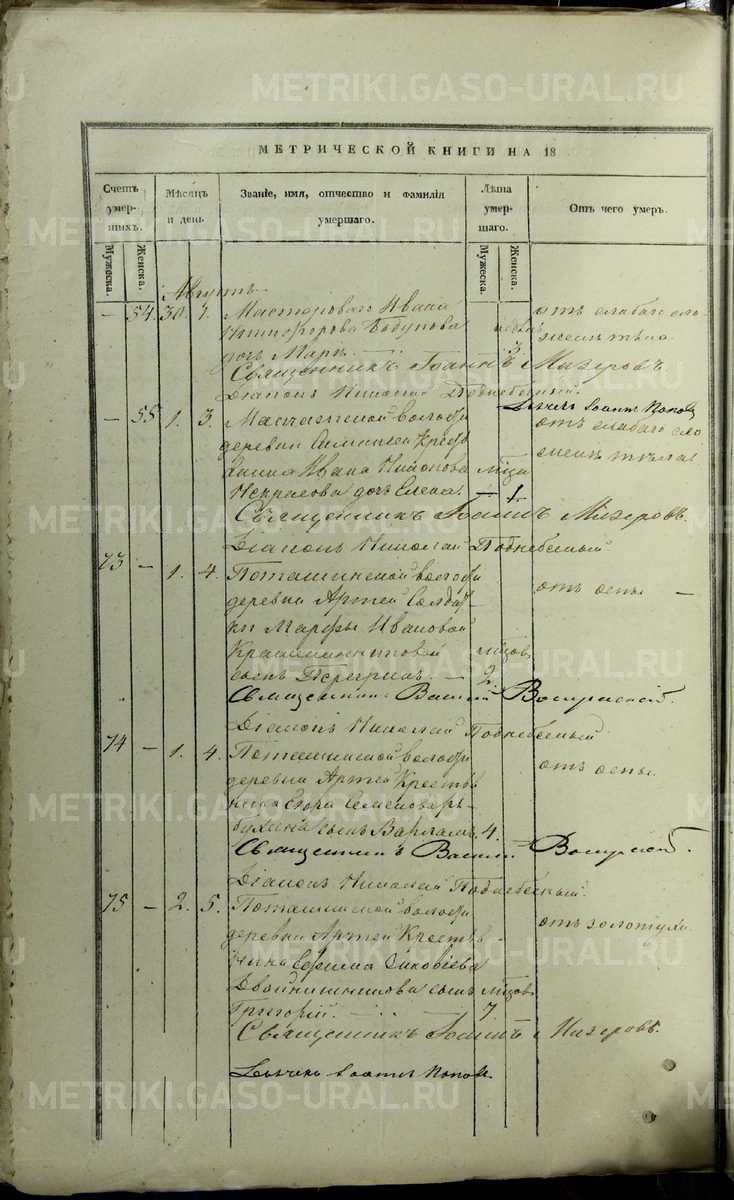 METRIKI.GASO-URAL.RU
МЕТРИЧЕСКОЙ КНИГИ НА 18
Счетъ умер-шихъ. Мѣсяцъ и день Званіе, имя, отчество и фамилія умершаго. Лѣта умер-шаго. Отъ чего умеръ.
Мужеска. Женска. Мужеска. Женска.
Августъ
— 54. 30. 1. Мастероваго Ивана отъ слабаго сло-
Никифорова недѣль женія тѣла
дочь Марія. 3.
Священникъ Іоаннъ Мизеровъ
Діаконъ Николай Поднебесный.
Дьячекъ Іоаннъ Поповъ
— 55 1. 3. волости отъ слабаго сло
деревни Кресть женія тѣла.
янина Ивана мѣсяца
Некрасова дочь Елена. — 1.
Священникъ Іоаннъ Мизеровъ.
Діаконъ Николай Поднебесный
73 — 1. 4. Поташинской волости отъ оспы. —
деревни Артей Солдат-
ки Марфы Ивановой
мѣсяцовъ
сынъ 2.
Священникъ Василій
Діаконъ Николай Поднебесный
74 — 1. 4. Поташинской волости отъ оспы.
деревни Артей Крестья
нина Егора Семенова Ря-
бухина сынъ Варлаамъ. 4.
Священникъ Василій
Діаконъ Николай Поднебесный.
75 — 2. 5. Поташинской волости отъ золотухи.
деревни Артей Крестья-
нина Ефима Зиновіева
сынъ мѣсяцовъ
Григорій. 7.
Священникъ Іоаннъ Мизеровъ.
Дьячекъ Іоаннъ Поповъ